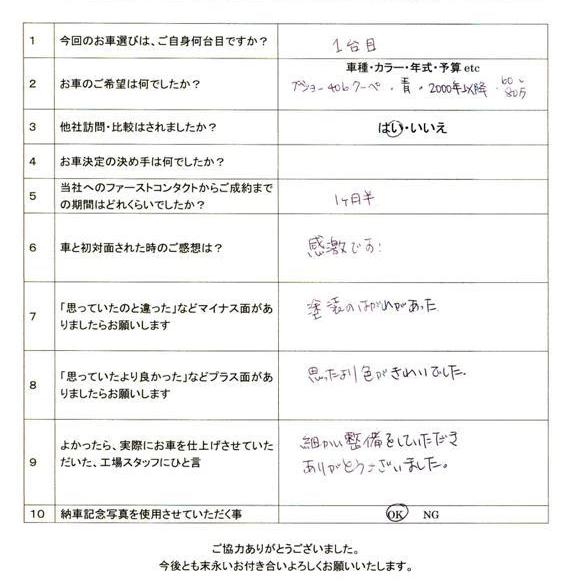 1 今回のお車選びは、ご自身何台目ですか？ 1台目
車種・カラー・年式・予算 etc
2 お車のご希望は何でしたか？ プジョー406クーペ・青・2000年以降・60〜80万
3 他社訪問・比較はされましたか？ はい・いいえ
4 お車決定の決め手は何でしたか？
5 当社へのファーストコンタクトからご成約まで
の期間はどれくらいでしたか？ 1ヶ月半
6 車と初対面された時のご感想は？ 感激です！
7 「思っていたのと違った」などマイナス面があ
りましたらお願いします 塗装のはがれがあった
8 「思っていたより良かった」などプラス面があ
りましたらお願いします 思ったより色がきれいでした。
9 よかったら、実際にお車を仕上げさせていた
だいた、工場スタッフにひと言 細かい整備をしていただき
ありがとうございました。
10 納車記念写真を使用させていただく事 OK NG
ご協力ありがとうございました。
今後とも末永いお付き合いよろしくお願いいたします。